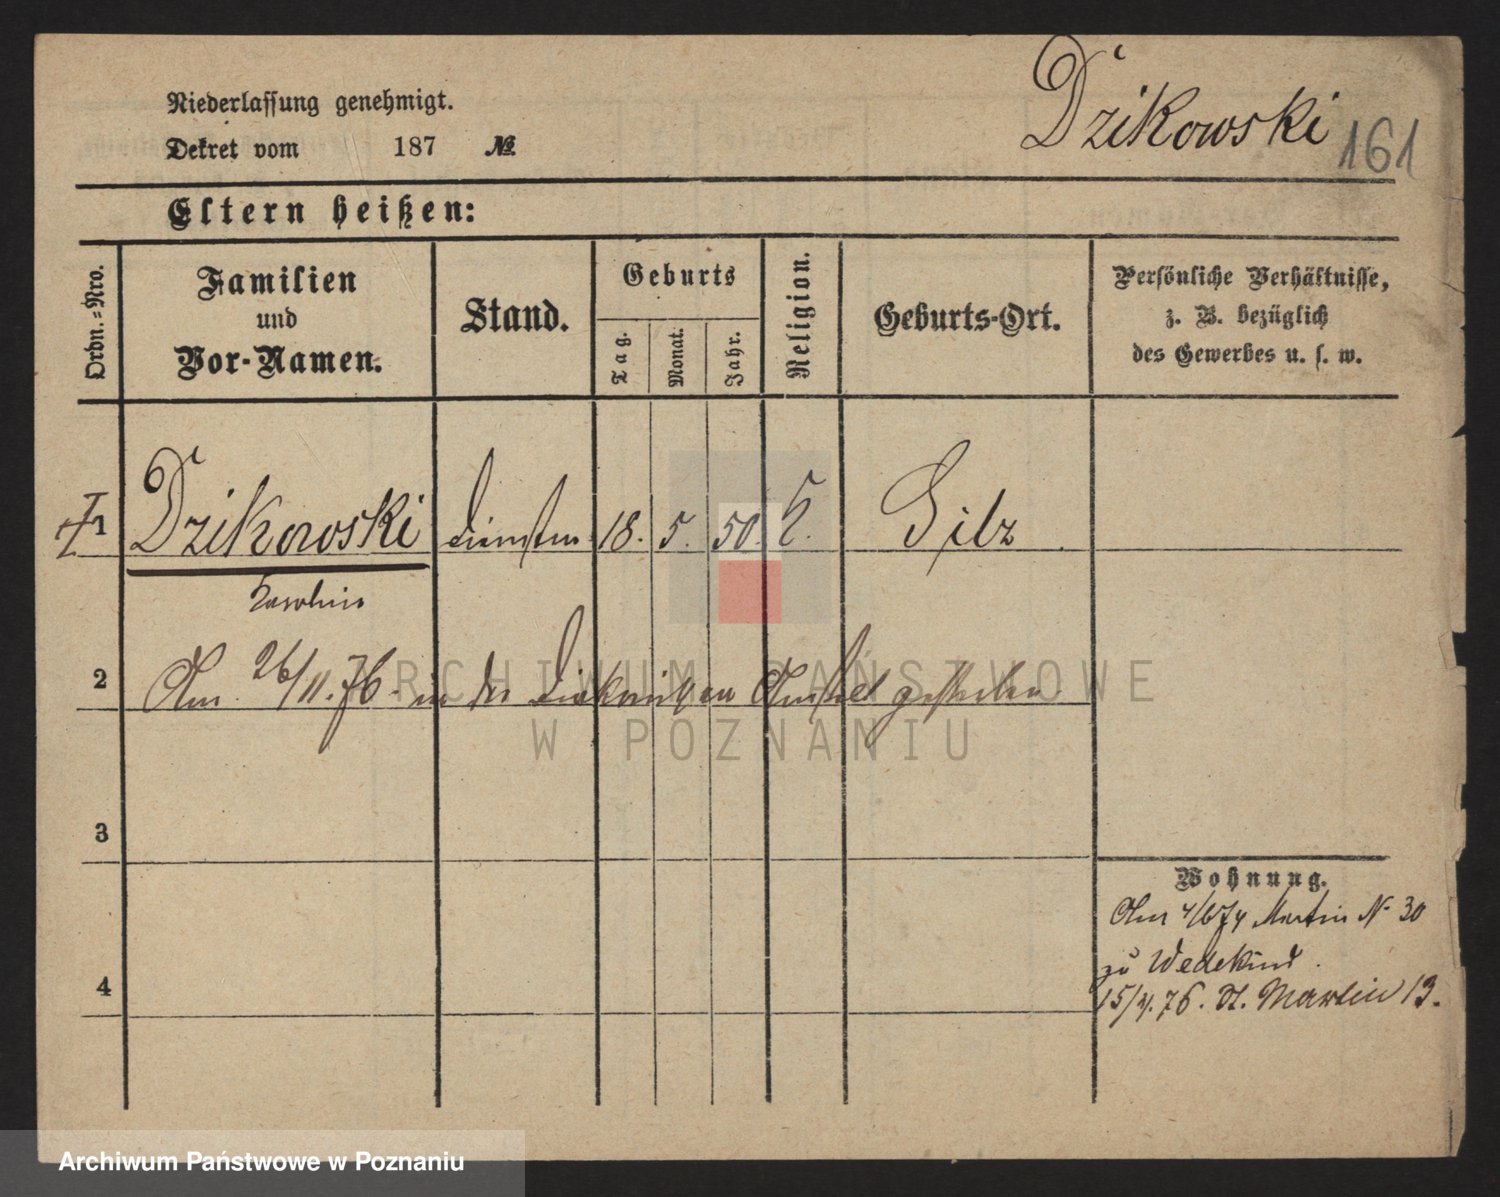 Niederlassung genehmigt.
Dekret vom 187 №
Dzikowski 161
Eltern heißen:
Ordn.-Nro.
Familien
und
Vor-Namen.
Stand.
Geburts
Tag.
Monat.
Jahr.
Religion.
Geburts-Ort.
Persönliche Verhältnisse,
z. B. bezüglich
des Gewerbes u. s. w.
1 Dzikowski 18. 5. 50. K.
2 Am 26/11. 76. in der Anstalt gestorben
3
4
Wohnung.
Am 4/6 74 Martin N. 30
zu Wedekind.
15/4. 76. St. Martin 13.
ARCHIWUM PAŃSTWOWE
W POZNANIU
Archiwum Państwowe w Poznaniu